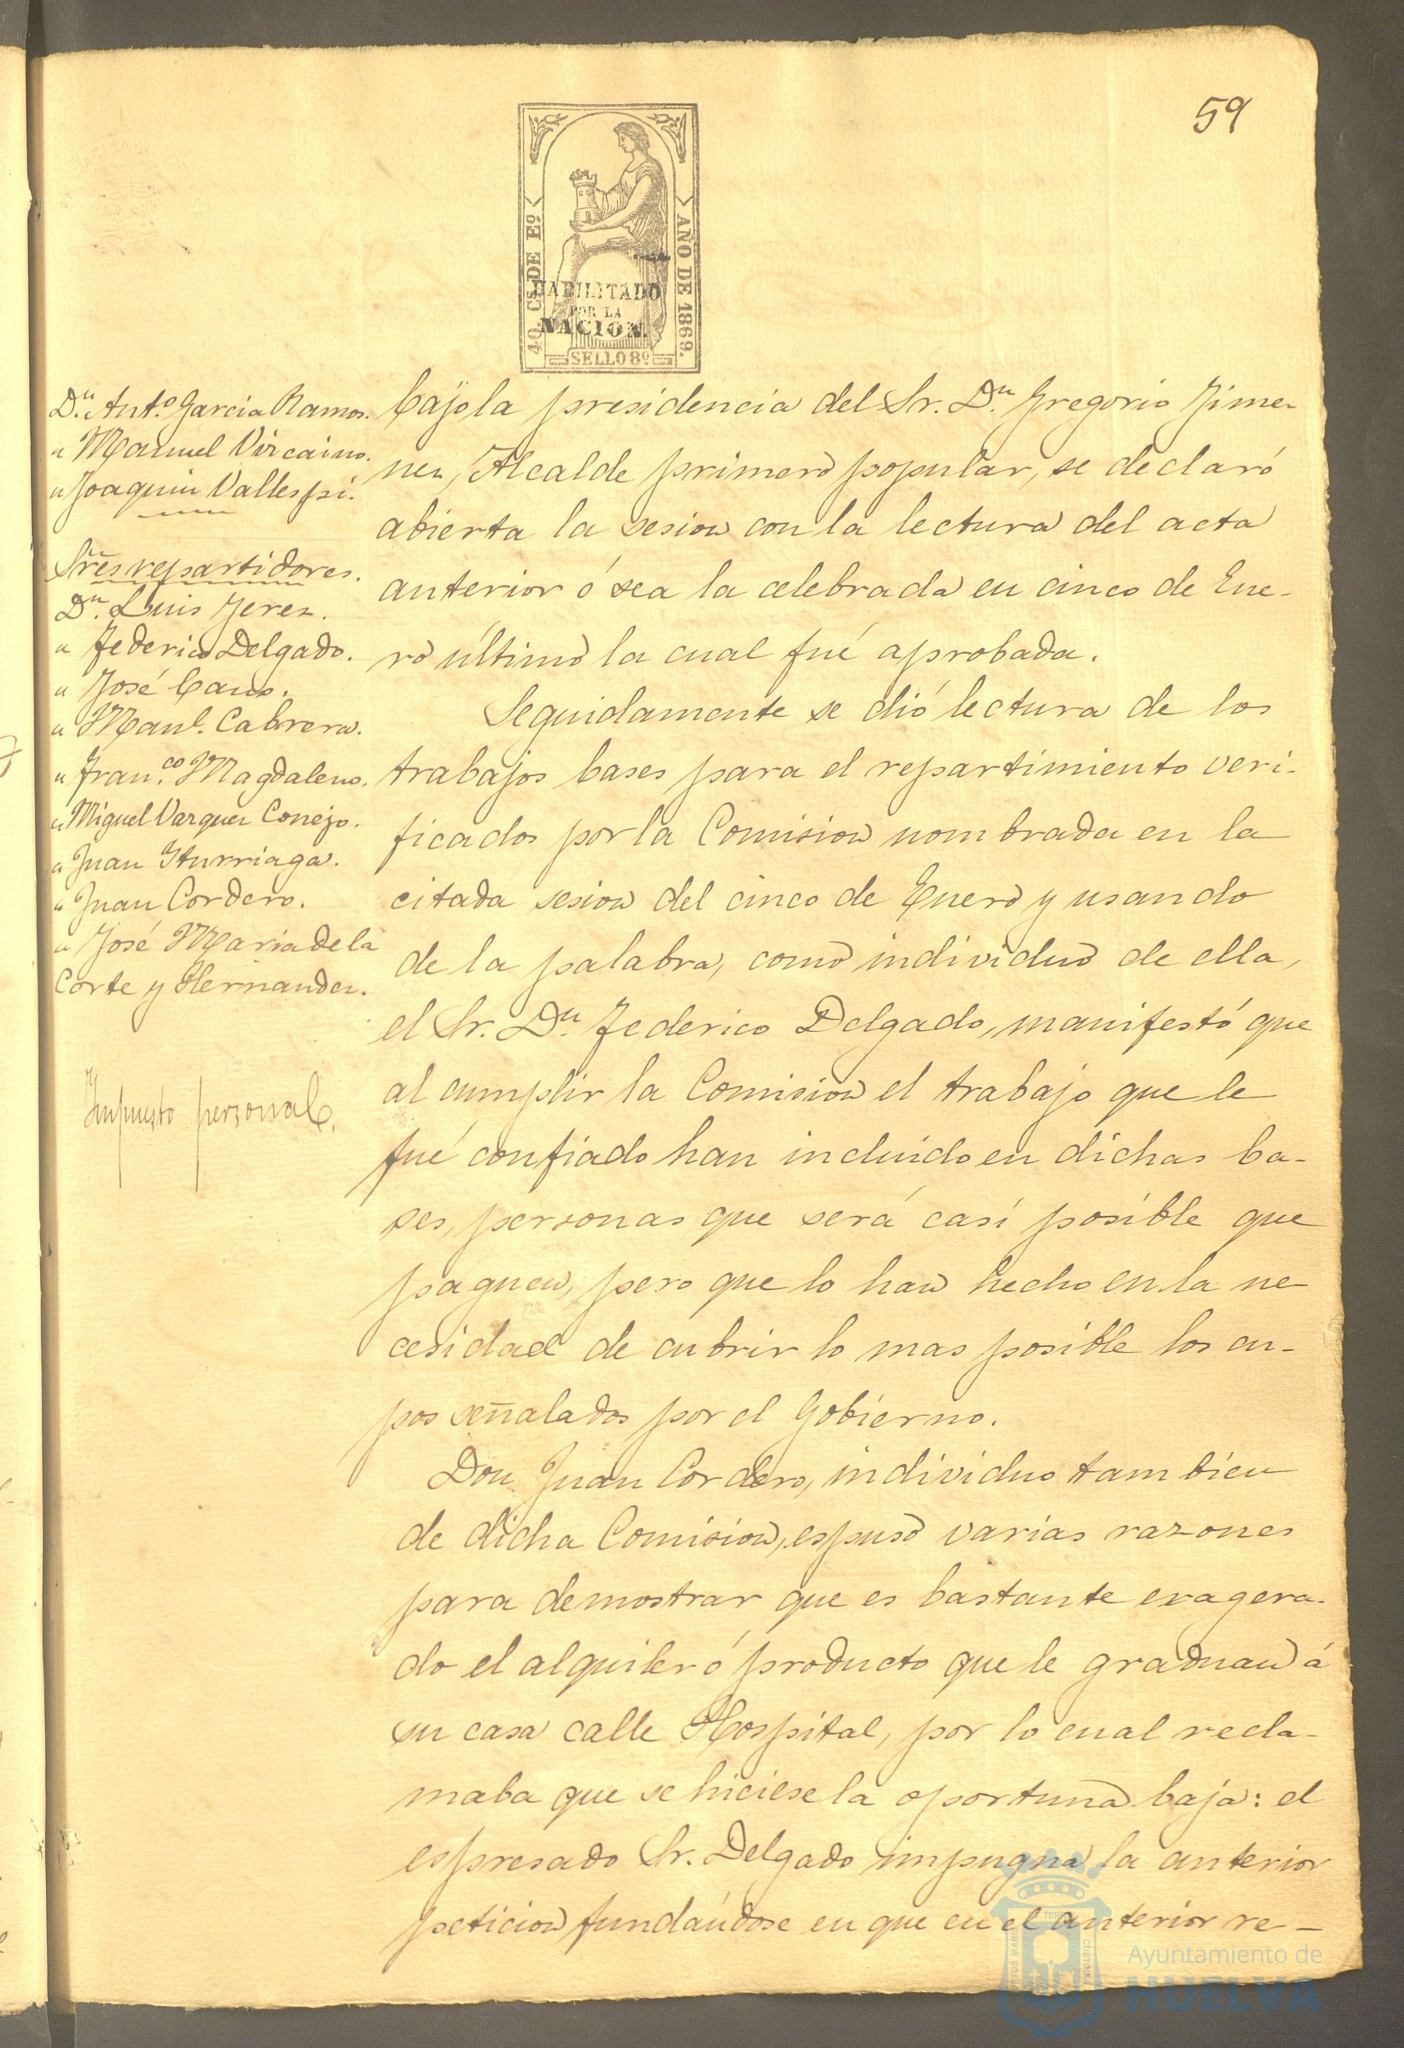 59
40 CS. DE Eº
AÑO DE 1869.
HABILITADO
POR LA
NACION.
SELLO 8º
D.ⁿ Ant.º Garcia Ramos.
" Manuel Vizcaino.
" Joaquin Vallespi.
Sres repartidores.
D.ⁿ Luis Jerez.
" Federico Delgado.
" José Cano.
" Man.l Cabrera.
" Fran.co Magdaleno.
" Miguel Vazquez Conejo.
" Juan Iturriaga.
" Juan Cordero.
" José Maria de la
Corte y Hernandez.
Impuesto personal.
bajo la presidencia del Sr. D.ⁿ Gregorio Jime-
nez, Alcalde primero popular, se declaró
abierta la sesion con la lectura del acta
anterior ó sea la celebrada en cinco de Ene-
ro último la cual fué aprobada.
Seguidamente se dió lectura de los
trabajos bases para el repartimiento veri-
ficados por la Comision nombrada en la
citada sesion del cinco de Enero y usando
de la palabra, como individuo de ella,
el Sr. D.ⁿ Federico Delgado, manifestó que
al cumplir la Comision el trabajo que le
fué confiado han incluido en dichas ba-
ses, personas que será casi posible que
paguen, pero que lo han hecho en la ne-
cesidad de cubrir lo mas posible los cu-
pos señalados por el Gobierno.
Don Juan Cordero, individuo tambien
de dicha Comision, espuso varias razones
para demostrar que es bastante exagera-
do el alquiler ó producto que le graduan á
su casa calle Hospital, por lo cual recla-
maba que se hiciese la oportuna baja: el
espresado Sr. Delgado impugna la anterior
peticion fundándose en que en el anterior re-
Ayuntamiento de
HUELVA